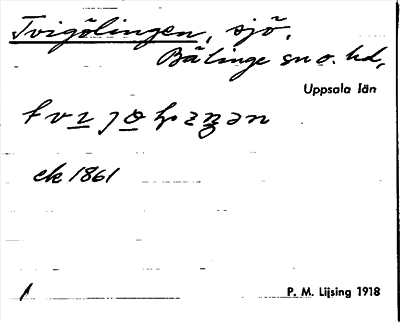 Tvigölingen, sjö.
Bälinge sn o. hd,
Uppsala län
ek 1861
1
P. M. Lijsing 1918